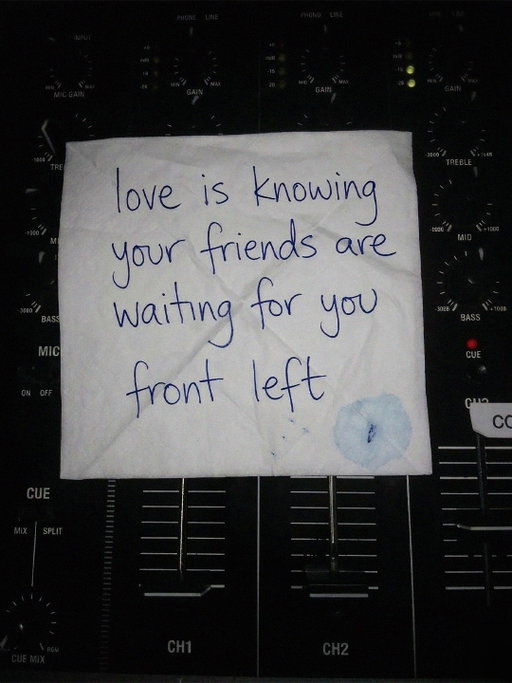 PHONE LINE
PHONO LINE
INPUT
MIC GAIN
MIN MAX
GAIN
MIN MAX
GAIN
GAIN
TREBLE
MID
BASS
love is knowing
your friends are
waiting for you
front left
BASS
MIC
ON OFF
CUE
CUE
MIX SPLIT
CUE MIX
PGM
CH1
CH2
CO